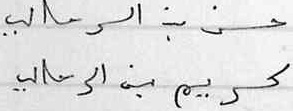 حسن بن الرحالي
كريم بن الرحالي